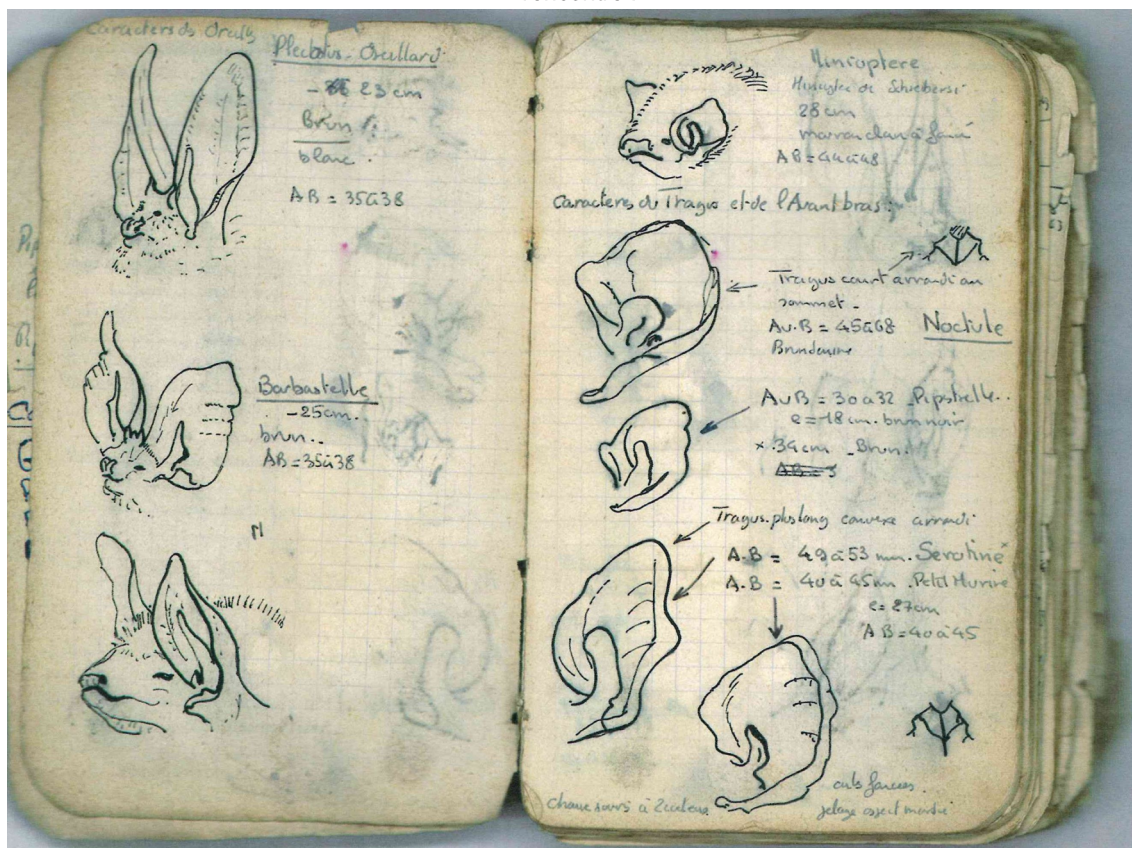 Caracteres Oreill
Plecotus. Oreillard
- 23 cm
Brun
blanc.
AB = 35 à 38
Barbastelle
- 25 cm.
brun..
AB = 35 à 38
Minioptere
Minioptere de Schrebersi
28 cm
marron clair à
AB = 44 à 48
Caracteres du Tragus et de l'Avant bras:
Tragus court arrondi au
sommet -
Av. B = 45 à 48 Noctule
Brun
AvB = 30 à 32 _ Pipistrelle..
e = 18 cm. brun noir
x .34 cm _ Brun.
AB = 3
Tragus plus long convexe arrondi
A.B = 49 à 53 mm. Serotine x
A.B = 40 à 45 m. Petit Murin
e = 27 cm
AB = 40 à 45
Chauve souris à 2 couleurs
aspect